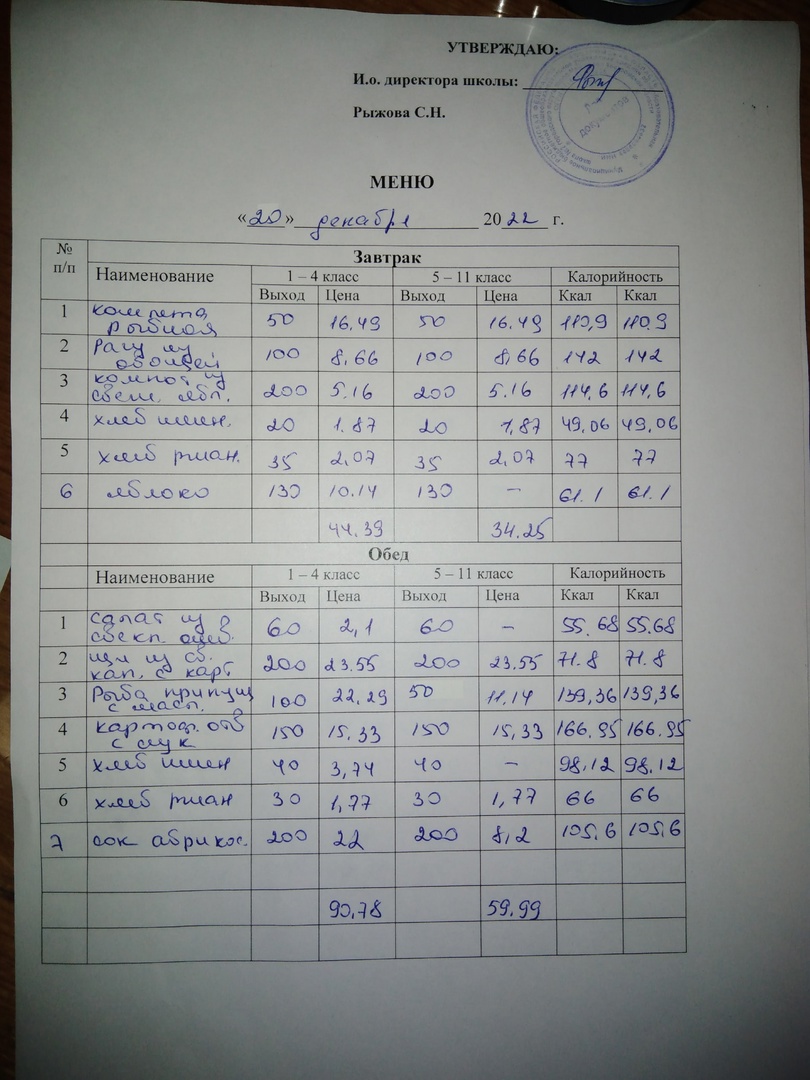 УТВЕРЖДАЮ:
И.о. директора школы:
Рыжова С.Н.
МЕНЮ
«20» декабря 2022 г.
№ п/п Завтрак
Наименование 1 – 4 класс 5 – 11 класс Калорийность
Выход Цена Выход Цена Ккал Ккал
1 котлета рыбная 50 16.49 50 16.49 110,9 110.9
2 Рагу из овощей 100 8,66 100 8,66 142 142
3 компот из свеж. ябл. 200 5.16 200 5.16 114,6 114,6
4 хлеб пшен. 20 1.87 20 1,87 49,06 49,06
5 хлеб ржан. 35 2,07 35 2,07 77 77
6 яблоко 130 10.14 130 – 61.1 61.1
44.39 34.25
Обед
Наименование 1 – 4 класс 5 – 11 класс Калорийность
Выход Цена Выход Цена Ккал Ккал
1 салат из свекл. 60 2,1 60 – 55.68 55.68
2 щи из св. кап. с карт 200 23.55 200 23.55 71.8 71.8
3 Рыба припущ с масл. 100 22,29 50 11.14 139,36 139,36
4 картоф. отв с лук 150 15,33 150 15,33 166.95 166.95
5 хлеб пшен 40 3,74 40 – 98,12 98,12
6 хлеб ржан 30 1,77 30 1,77 66 66
7 сок абрикос. 200 22 200 8,2 105,6 105,6
90,78 59.99